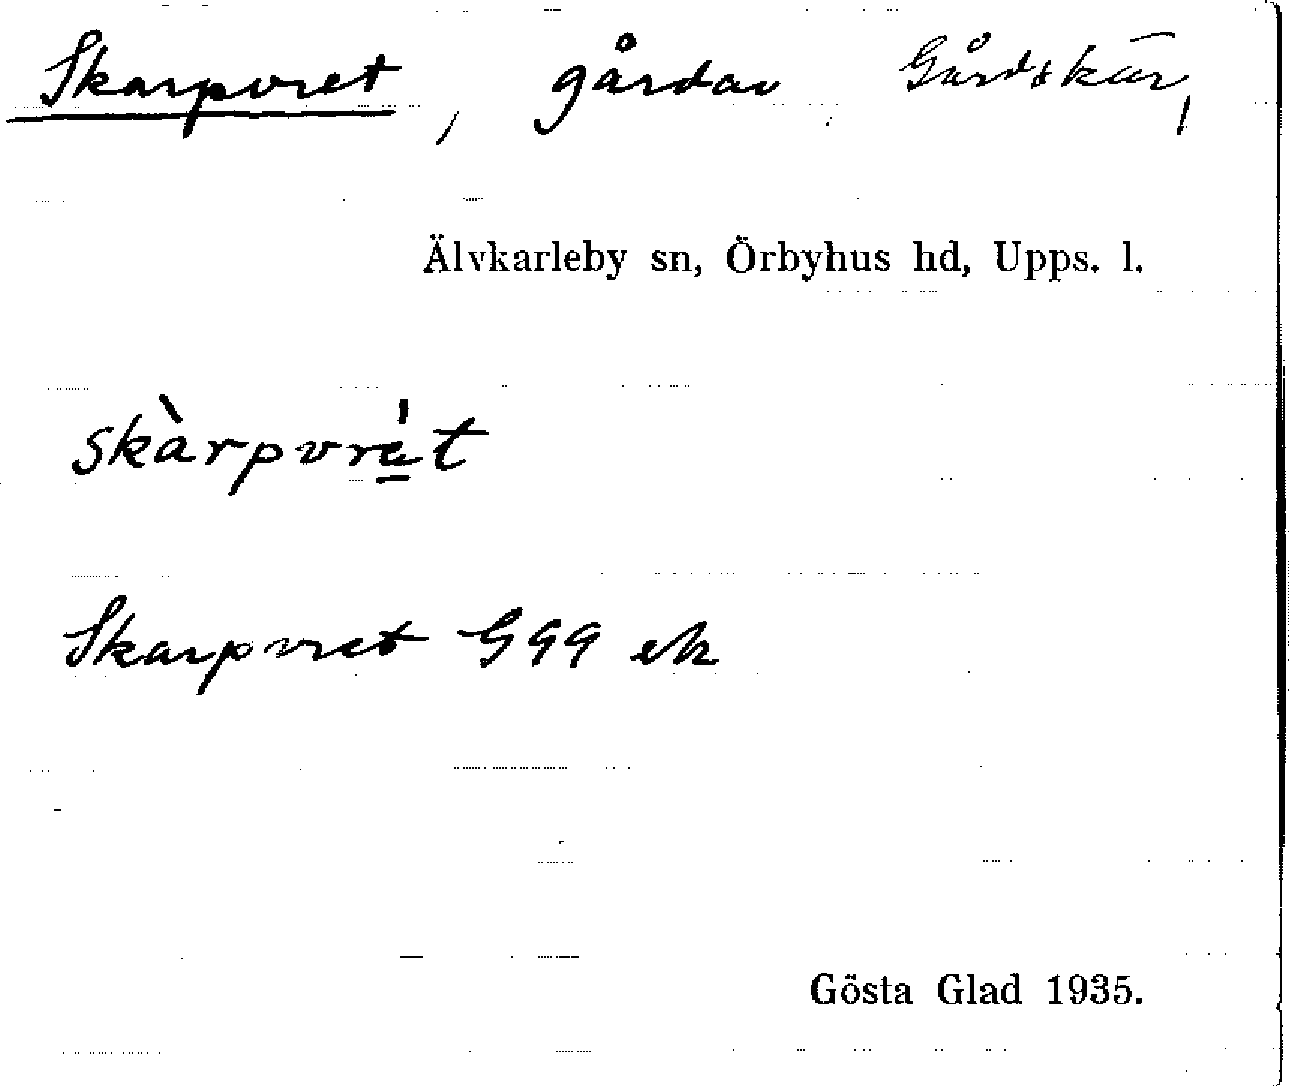 Skarpvret, gårdav Gårdskär,
Älvkarleby sn, Örbyhus hd, Upps. l.
skàrpvrét
Skarpvret G99 ek
Gösta Glad 1935.